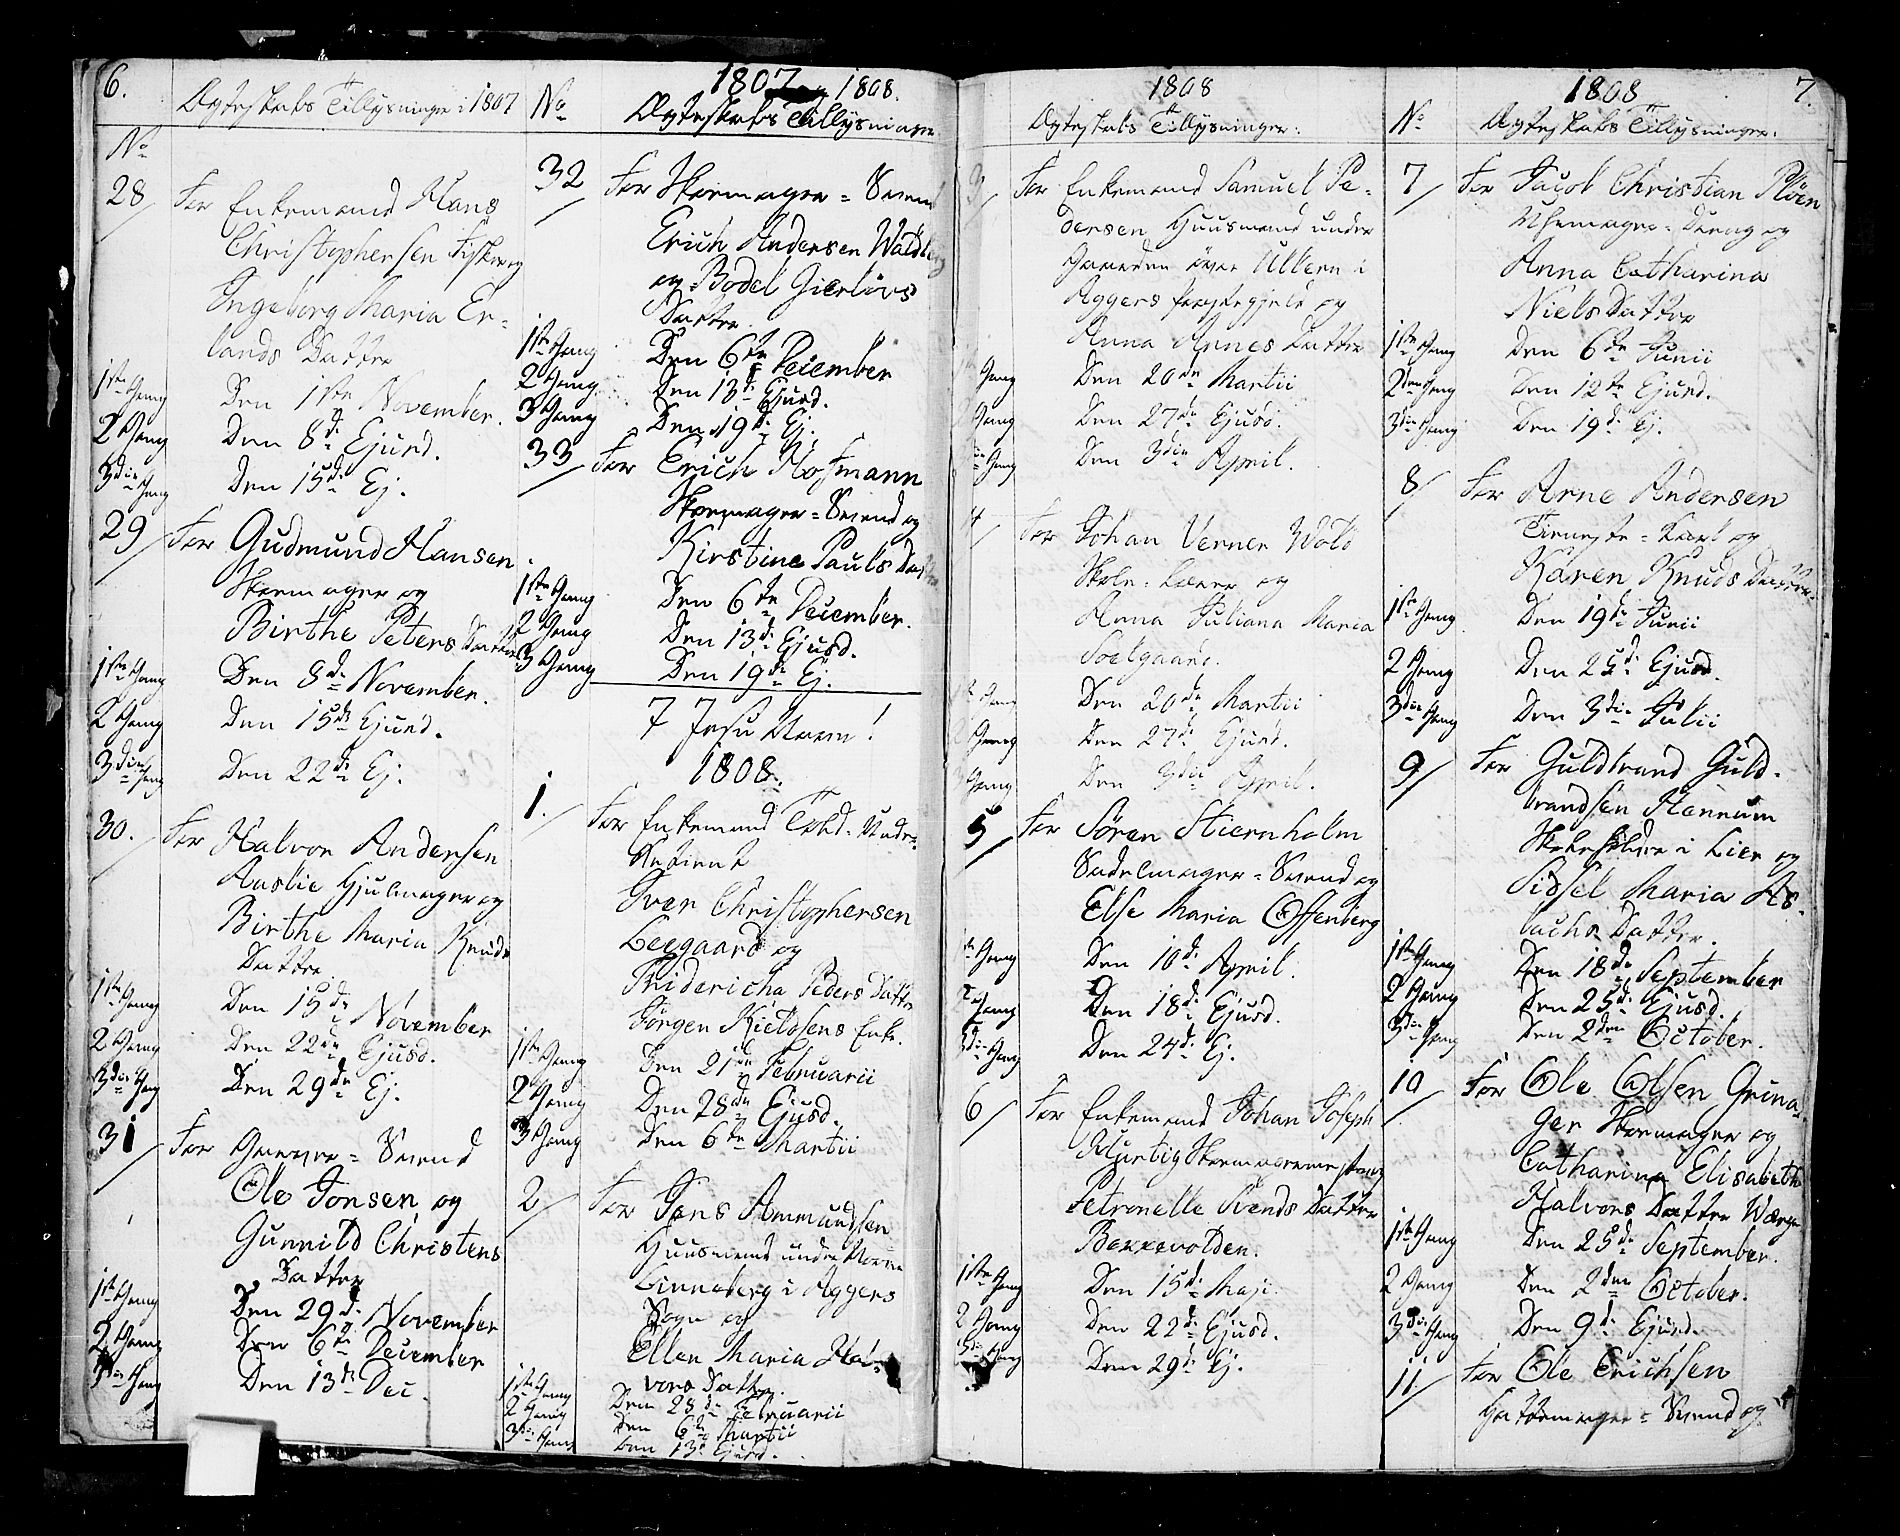 6.
Ægteskabs Tillysninger i 1807
No
28 For Enkemand Hans
Christophersen Fisker og
Ingeborg Maria Er-
lands Datter
1ste Gang Den 1ste November.
2 Gang Den 8de Ejusd.
3die Gang Den 15de Ej.
29 For Gudmund Hansen
Skomager og
Birthe Peters Datter
1ste Gang Den 8de November.
2 Gang Den 15de Ejusd.
3die Gang Den 22de Ej.
30. For Halvor Andersen
Hjulmager og
Birthe Maria Knuds
Datter
1ste Gang Den 15de November
2 Gang Den 22de Ejusd.
3die Gang Den 29de Ej.
31 For Garver-Svend
Ole Jonsen og
Gunnild Christens
Datter
1ste Gang Den 29de November
2 Gang Den 6te December
3die Gang Den 13de Dec.
1807 1808.
No Ægteskabs Tillysninger
32 For Skomager-Svend
Erich Andersen Waldberg
og Bodel Gierløvs
Datter.
1ste Gang Den 6te December
2 Gang Den 13de Ejusd.
3 Gang Den 19de Ej.
33 For Erich Hofmann
Skomager-Svend og
Kirstine Pauls Datter
1ste Gang Den 6te December.
2 Gang Den 13de Ejusd.
3 Gang Den 19de Ej.
I Jesu Navn!
1808.
1. For Enkemand Told-Under-
Betient
Iver Christophersen
Leegaard og
Fridericha Peders Datter
Jørgen Kieldsens Enke.
1ste Gang Den 21de Februarii
2 Gang Den 28de Ejusd.
3 Gang Den 6te Martii
2 For Jens Ammundsen
Huusmand under
Linneberg i Aggers
Sogn og
Ellen Maria Hal-
vors Datter.
1ste Gang Den 28de Februarii
2 Gang Den 6te Martii
3die Gang Den 13de Ejusd.
1808
Ægteskabs Tillysninger.
3 For Enkemand Samuel Pe-
dersen Huusmand under
Gaarden øvre Ullern i
Aggers Præstegjeld og
Anna Arnes Datter
Gang Den 20de Martii
Gang Den 27de Ejusd.
Gang Den 3die April.
4 For Johan Verner Wold
Skole-Lærer og
Anna Juliana Maria
Soelgaard.
Gang Den 20de Martii
2 Gang Den 27de Ejusd.
3 Gang Den 3die April.
5 For Søren Stiernholm
Sadelmager-Svend og
Else Maria Offenberg
Gang Den 10de April.
2 Gang Den 18de Ejusd.
3die Gang Den 24de Ej.
6 For Enkemand Johan Joseph
Skomagermester og
Petronelle Svends Datter
Berrevolden.
1ste Gang Den 15de Maji.
2 Gang Den 22de Ejusd.
3die Gang Den 29de Ej.
1808 7.
No Ægteskabs Tillysninger.
7 For Jacob Christian Pløen
Uhrmager-Dreng og
Anna Catharina
Niels Datter
1ste Gang Den 6te Junii
2den Gang Den 12te Ejusd.
3die Gang Den 19de Ej.
8 For Arne Andersen
Tieneste-Karl og
Karen Knuds Datter
1ste Gang Den 19de Junii
2 Gang Den 25de Ejusd.
3die Gang Den 3die Julii
9 For Guldbrand Guld-
brandsen Hennum
Skoleholder i Lier og
Sidsel Maria As-
lachs Datter.
1ste Gang Den 18de September
2 Gang Den 25de Ejusd.
3die Gang Den 2den October.
10 For Ole Olsen Grina-
ger Skomager og
Catharina Elisabeth
Halvors Datter
1ste Gang Den 25de September.
2 Gang Den 2den October.
3die Gang Den 9de Ejusd.
11. For Ole Erichsen
Hattemager-Svend og